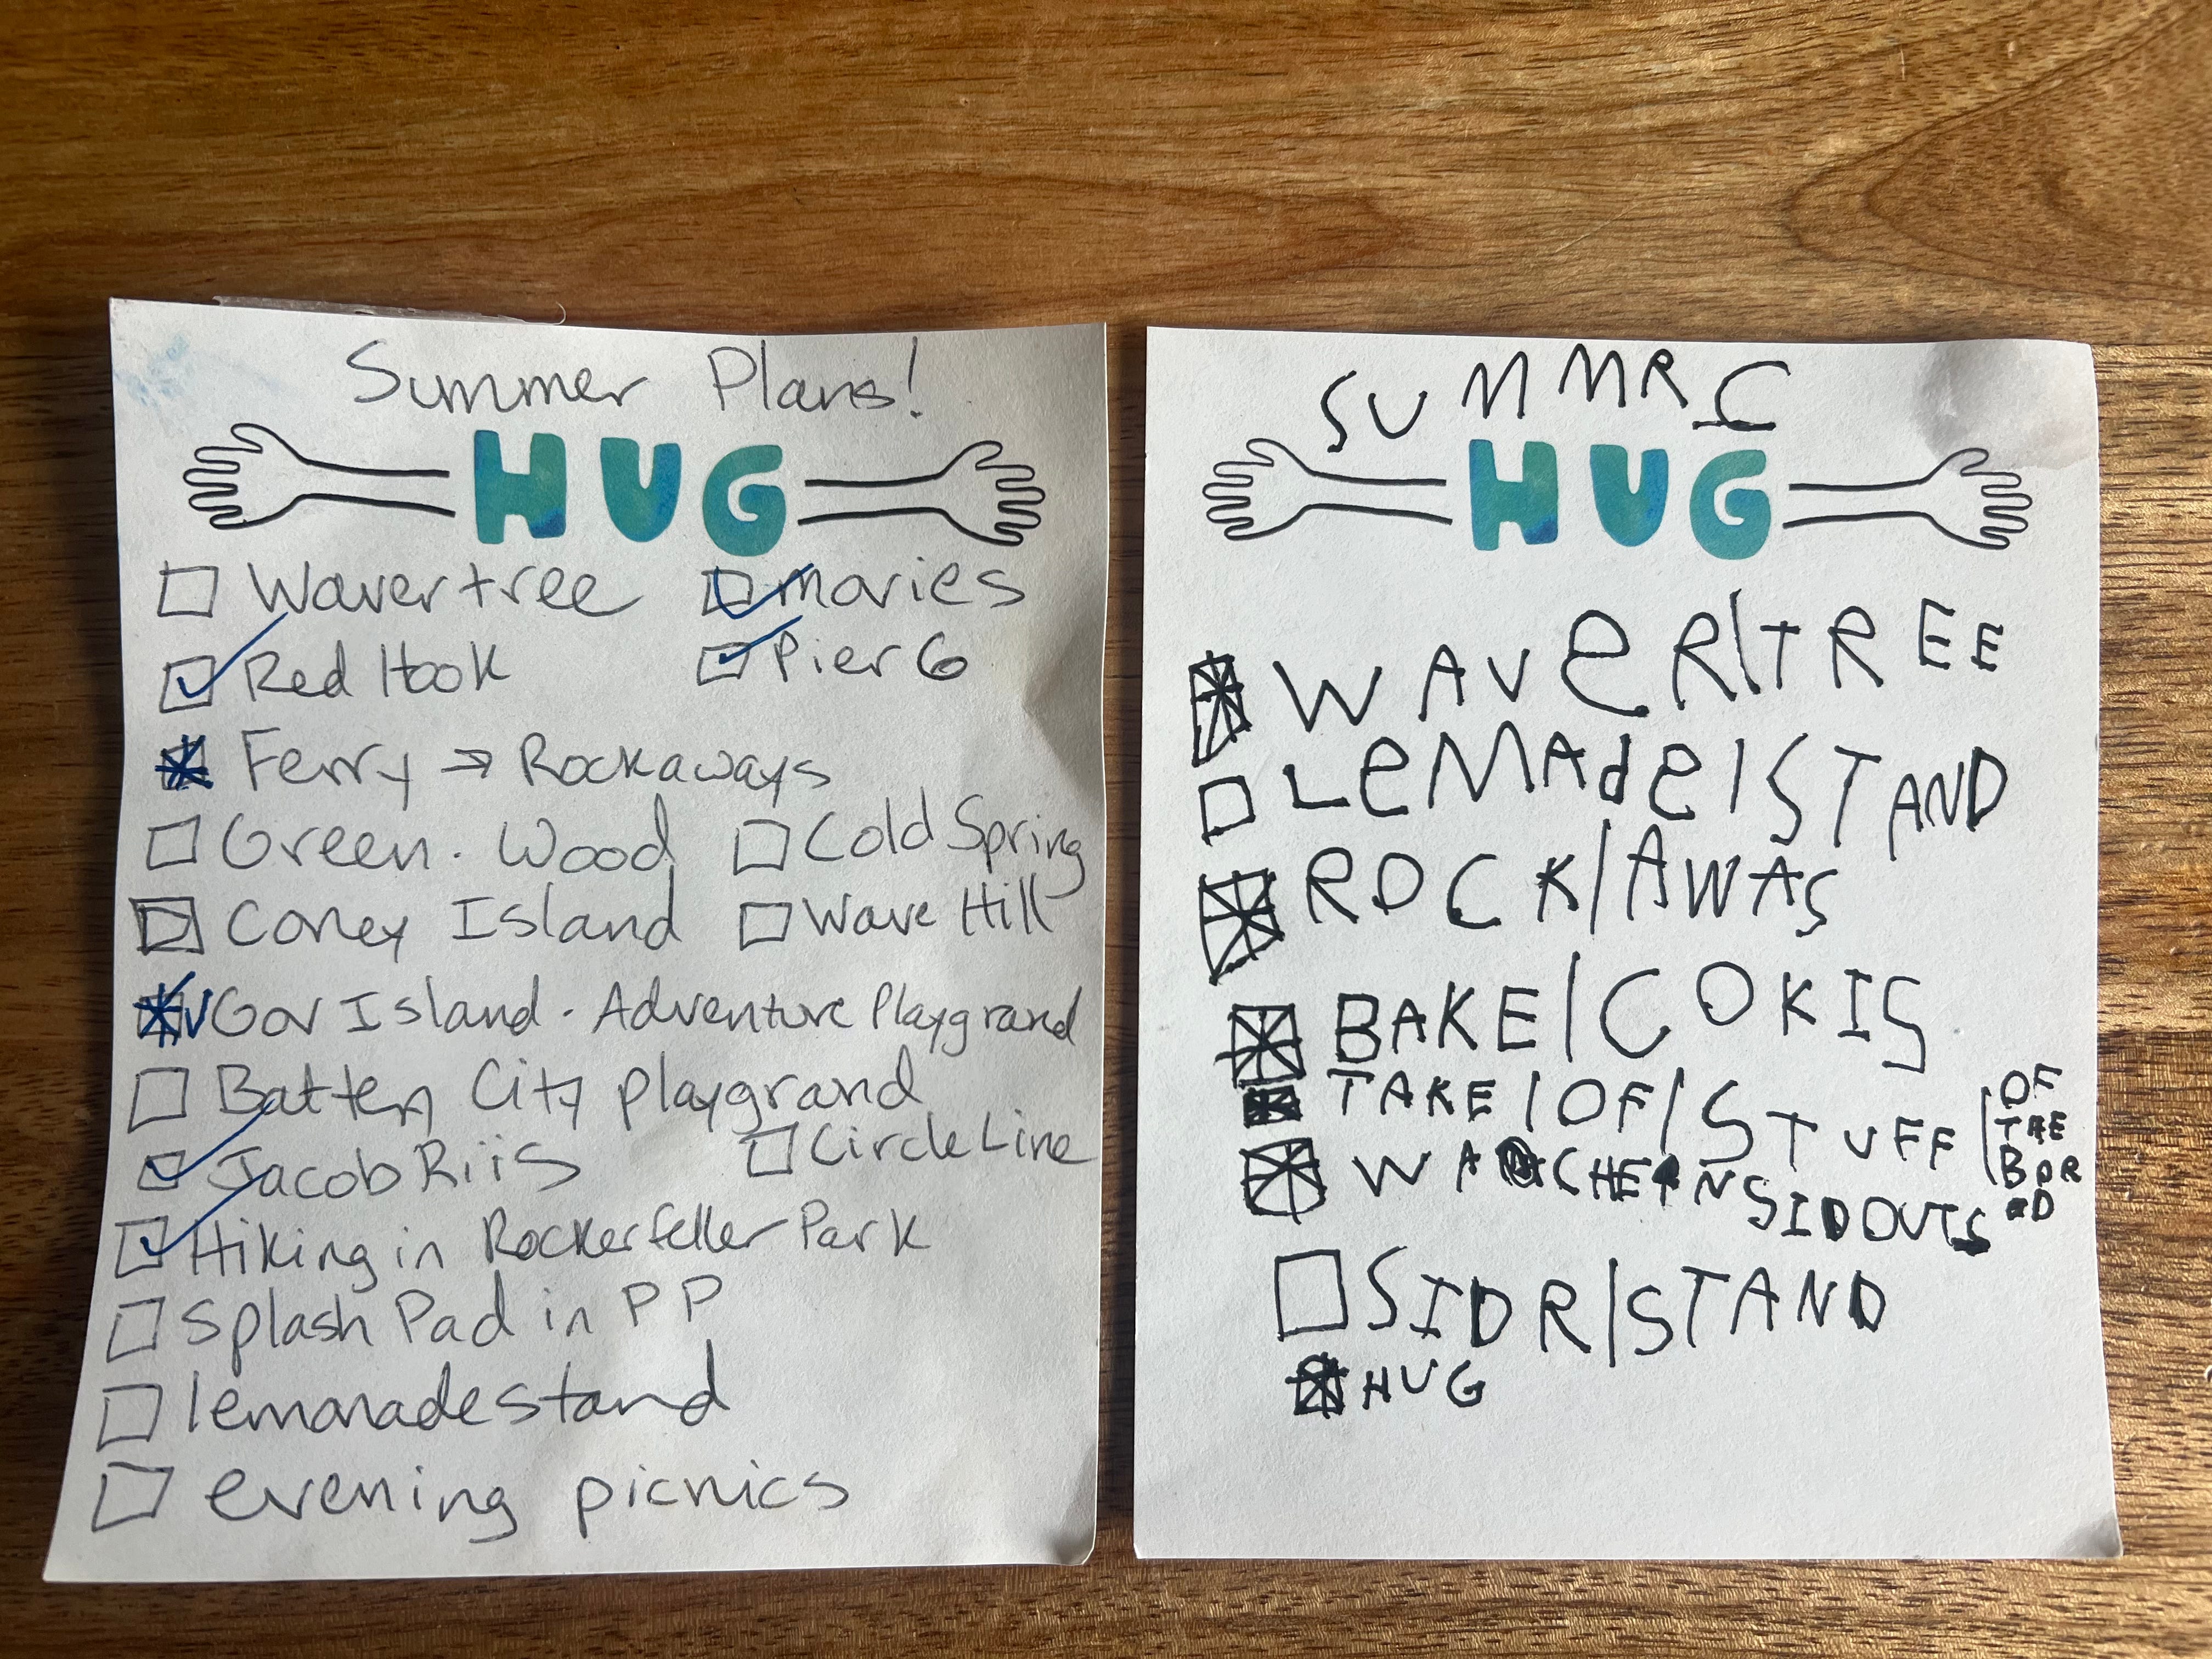 Summer Plans!
HUG
Wavertree
movies
Red Hook
Pier 6
Ferry → Rockaways
Green. Wood
Cold Spring
Coney Island
Wave Hill
Gov Island. Adventure Playground
Battery City playground
Jacob Riis
Circle Line
Hiking in Rockerfeller Park
Splash Pad in PP
lemonade stand
evening picnics
SUMMR
HUG
WAVeR|TREE
LeMAde|STAND
ROCK|AWAS
BAKE|COKIS
TAKE|OF|STUFF|OF THE BOR
WA CHE NSIDOUTS
SIDR|STAND
HUG